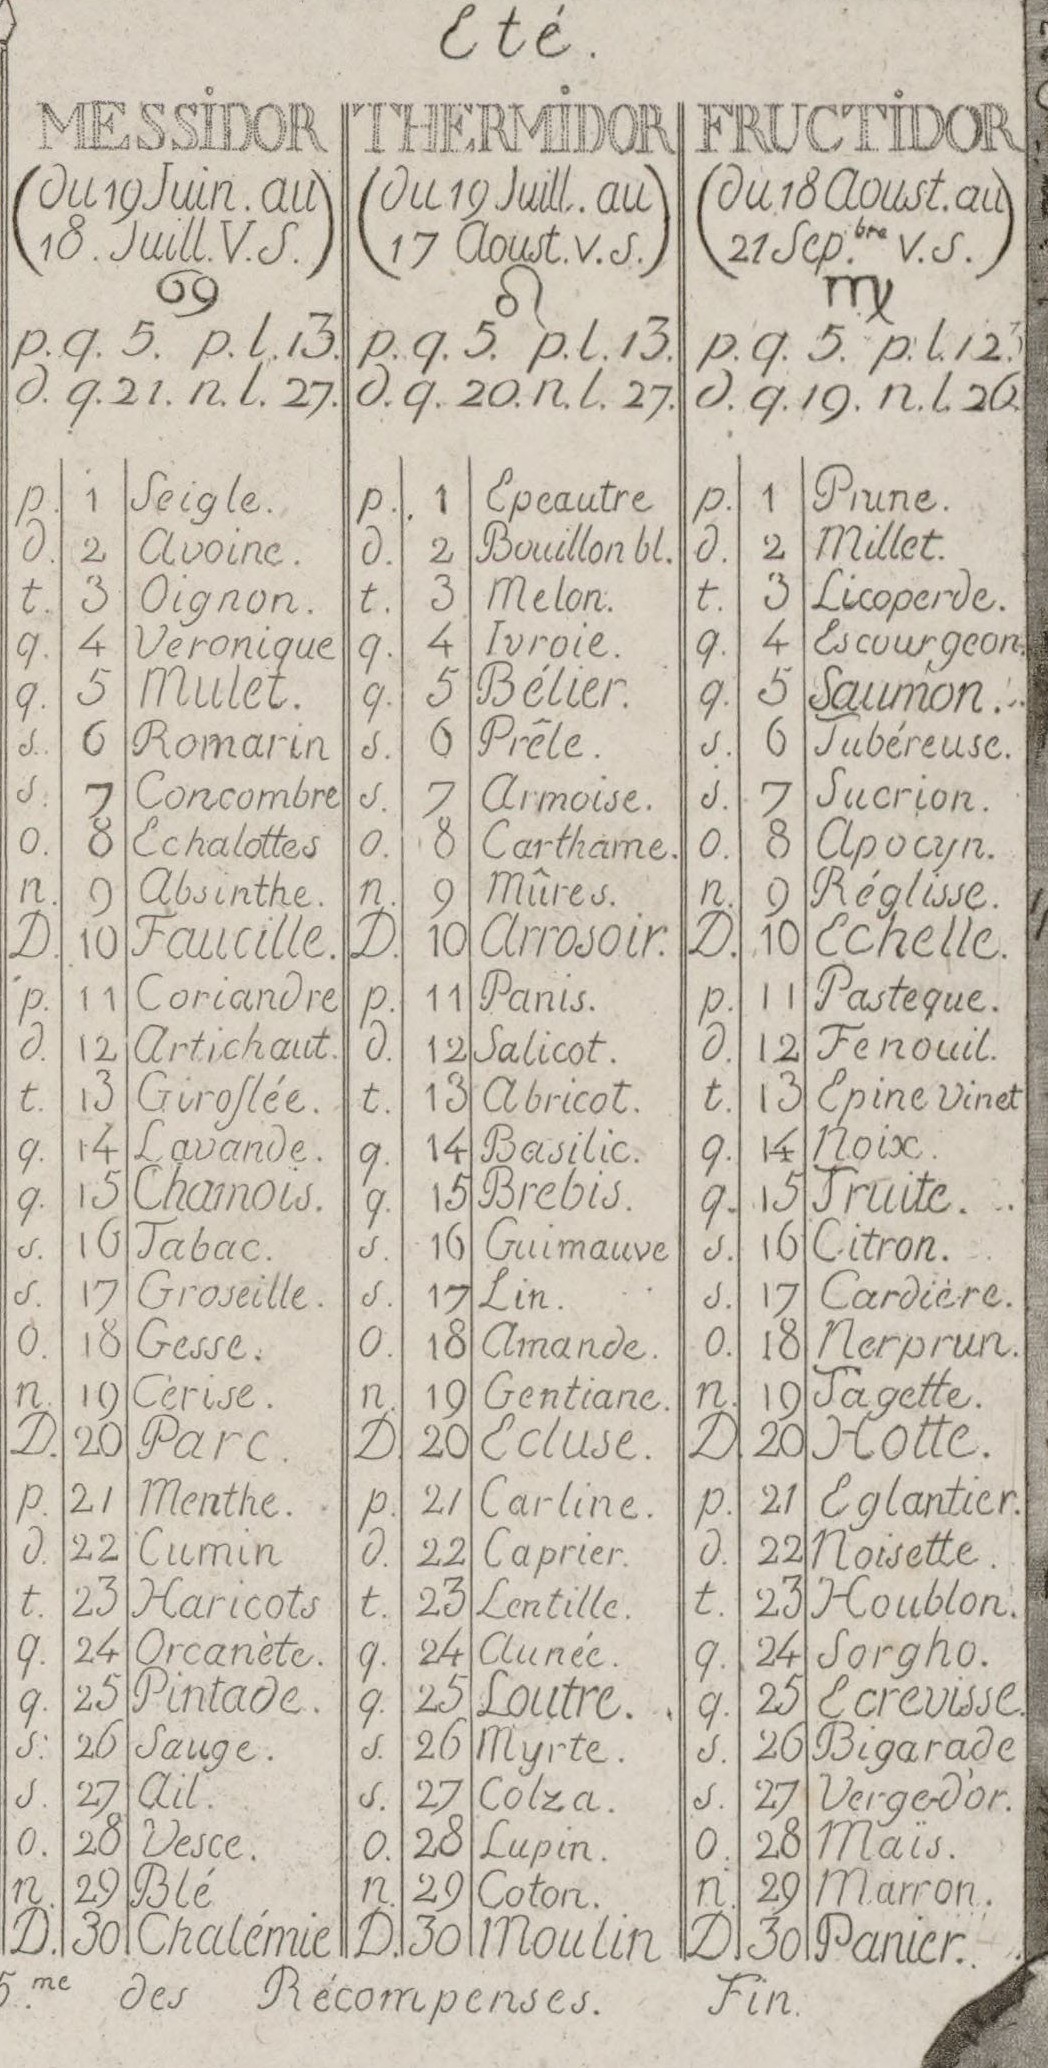 Eté.
MESSIDOR THERMIDOR FRUCTIDOR
(du 19 Juin. au (du 19 Juill. au (du 18 Aoust. au
18. Juill. V.S.) 17 Aoust. v.s.) 21 Sep.bre v.s.)
♋ ♌ ♍
p.q. 5. p.l. 13. p.q. 5. p.l. 13. p.q. 5. p.l. 12.
d.q. 21. n.l. 27. d.q. 20. n.l. 27. d.q. 19. n.l. 26.
p. 1 Seigle. p. 1 Epeautre p. 1 Prune.
d. 2 Avoine. d. 2 Bouillon bl. d. 2 Millet.
t. 3 Oignon. t. 3 Melon. t. 3 Licoperde.
q. 4 Veronique q. 4 Ivroie. q. 4 Escourgeon.
q. 5 Mulet. q. 5 Bélier. q. 5 Saumon.
s. 6 Romarin s. 6 Prêle. s. 6 Tubéreuse.
s. 7 Concombre s. 7 Armoise. s. 7 Sucrion.
o. 8 Echalottes o. 8 Carthame. o. 8 Apocyn.
n. 9 Absinthe. n. 9 Mûres. n. 9 Réglisse.
D. 10 Faucille. D. 10 Arrosoir. D. 10 Echelle.
p. 11 Coriandre p. 11 Panis. p. 11 Pasteque.
d. 12 Artichaut. d. 12 Salicot. d. 12 Fenouil.
t. 13 Giroflée. t. 13 Abricot. t. 13 Epine vinet
q. 14 Lavande. q. 14 Basilic. q. 14 Noix.
q. 15 Chamois. q. 15 Brebis. q. 15 Truite.
s. 16 Tabac. s. 16 Guimauve s. 16 Citron.
s. 17 Groseille. s. 17 Lin. s. 17 Cardière.
o. 18 Gesse. o. 18 Amande. o. 18 Nerprun.
n. 19 Cerise. n. 19 Gentiane. n. 19 Tagette.
D. 20 Parc. D. 20 Ecluse. D. 20 Hotte.
p. 21 Menthe. p. 21 Carline. p. 21 Eglantier.
d. 22 Cumin d. 22 Caprier. d. 22 Noisette.
t. 23 Haricots t. 23 Lentille. t. 23 Houblon.
q. 24 Orcanète. q. 24 Aunée. q. 24 Sorgho.
q. 25 Pintade. q. 25 Loutre. q. 25 Ecrevisse.
s. 26 Sauge. s. 26 Myrte. s. 26 Bigarade
s. 27 Ail. s. 27 Colza. s. 27 Verge-d'or.
o. 28 Vesce. o. 28 Lupin. o. 28 Maïs.
n. 29 Blé n. 29 Coton. n. 29 Marron.
D. 30 Chalémie D. 30 Moulin D. 30 Panier.
5.me des Récompenses. Fin.